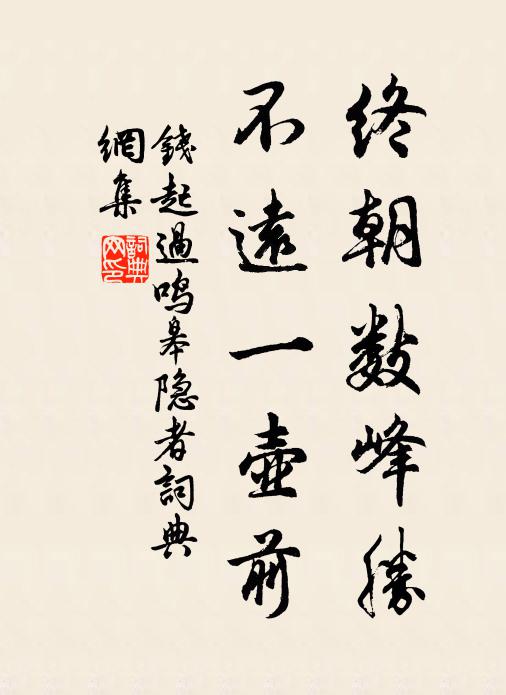 终朝数峰勝
不遠一壺前
錢起過鸣皋隐者詞典
網集
詞典
网印